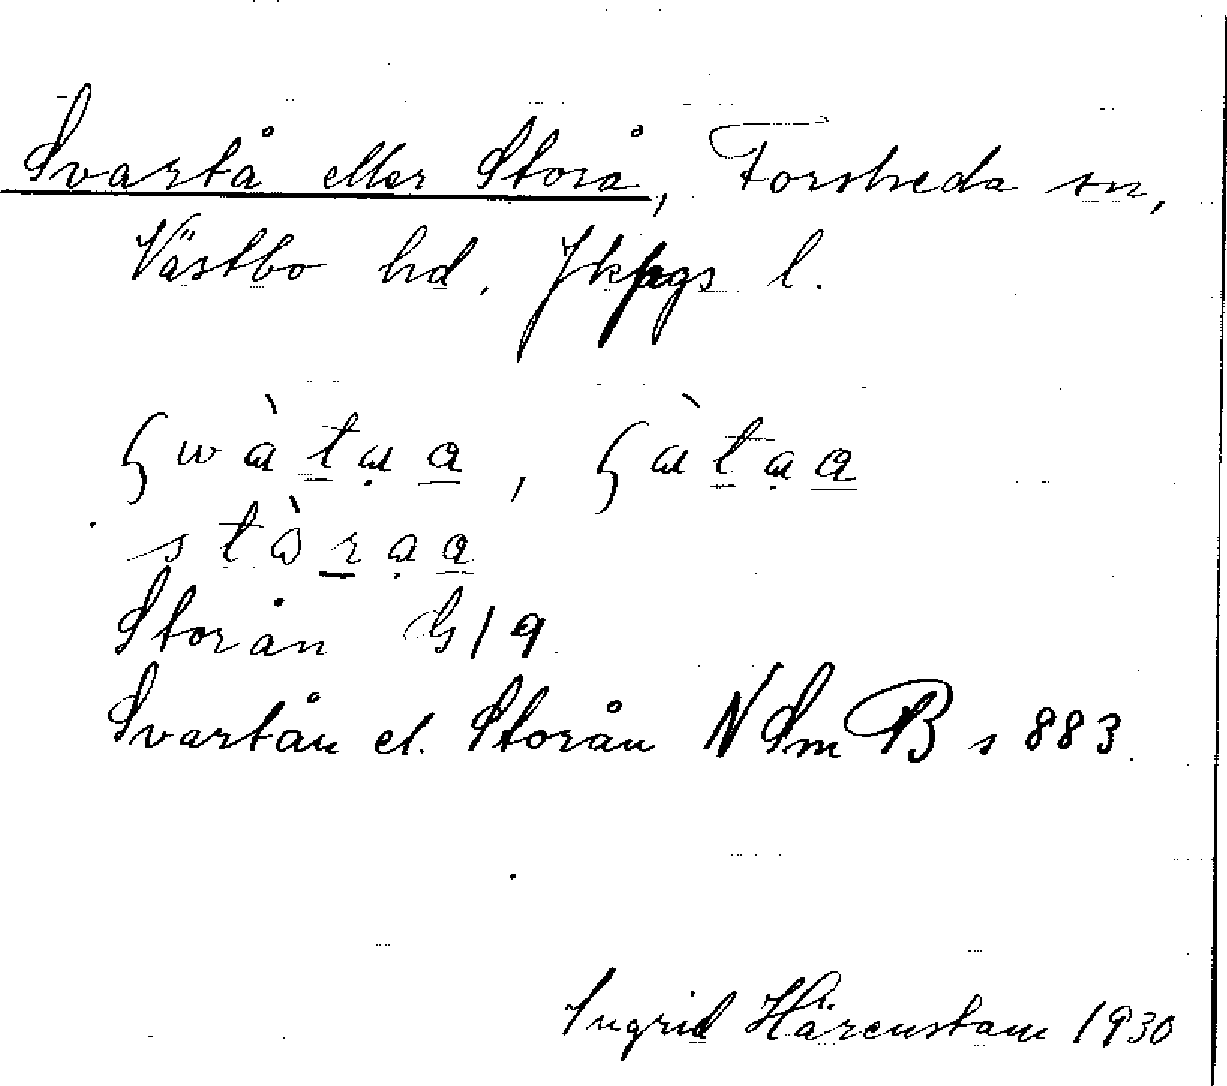 Svartå eller Storå, Forsheda sn,
Västbo hd. Jkpgs l.
Storån G 19
Svartån el. Storån N Sm B s 883.
Ingrid Härenstam 1930